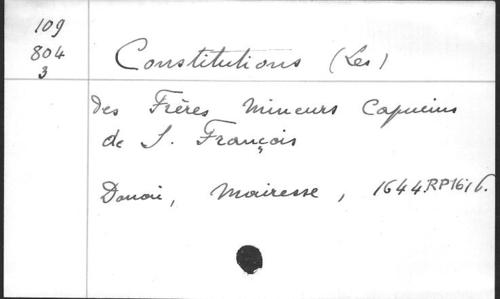 109
804
3
Constitutions (Les)
des Frères Mineurs Capucins
de S. François
Douai, Mairesse, 1644. RP16:16.